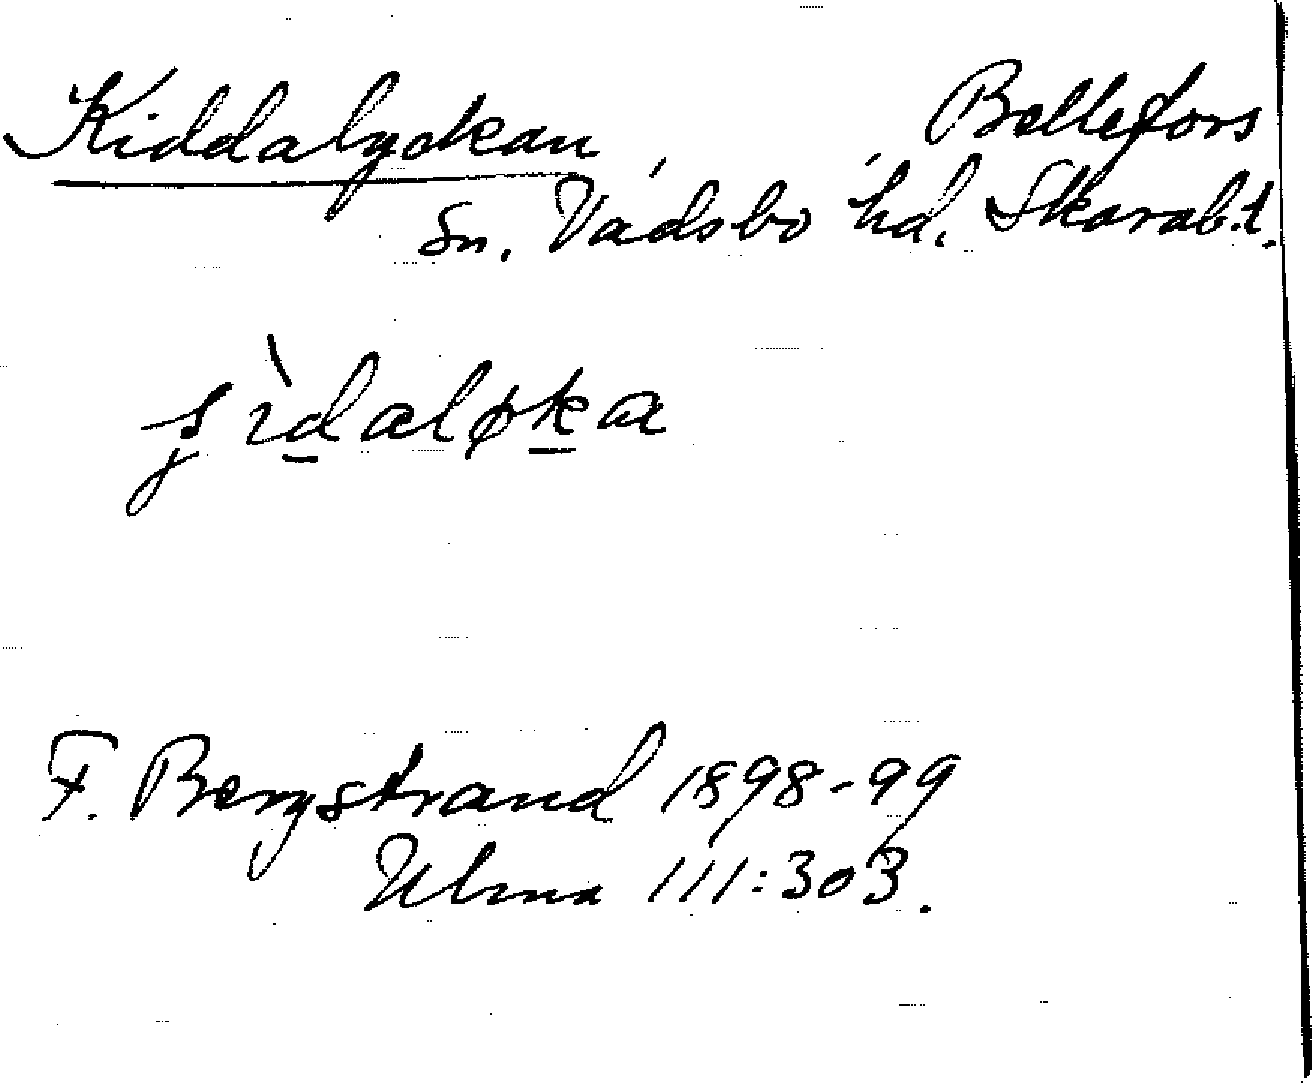 Kiddalyckan, Bellefors
Sn. Vadsbo hd. Skarab.l.
F. Bergstrand 1898-99
Ulma 111:303.